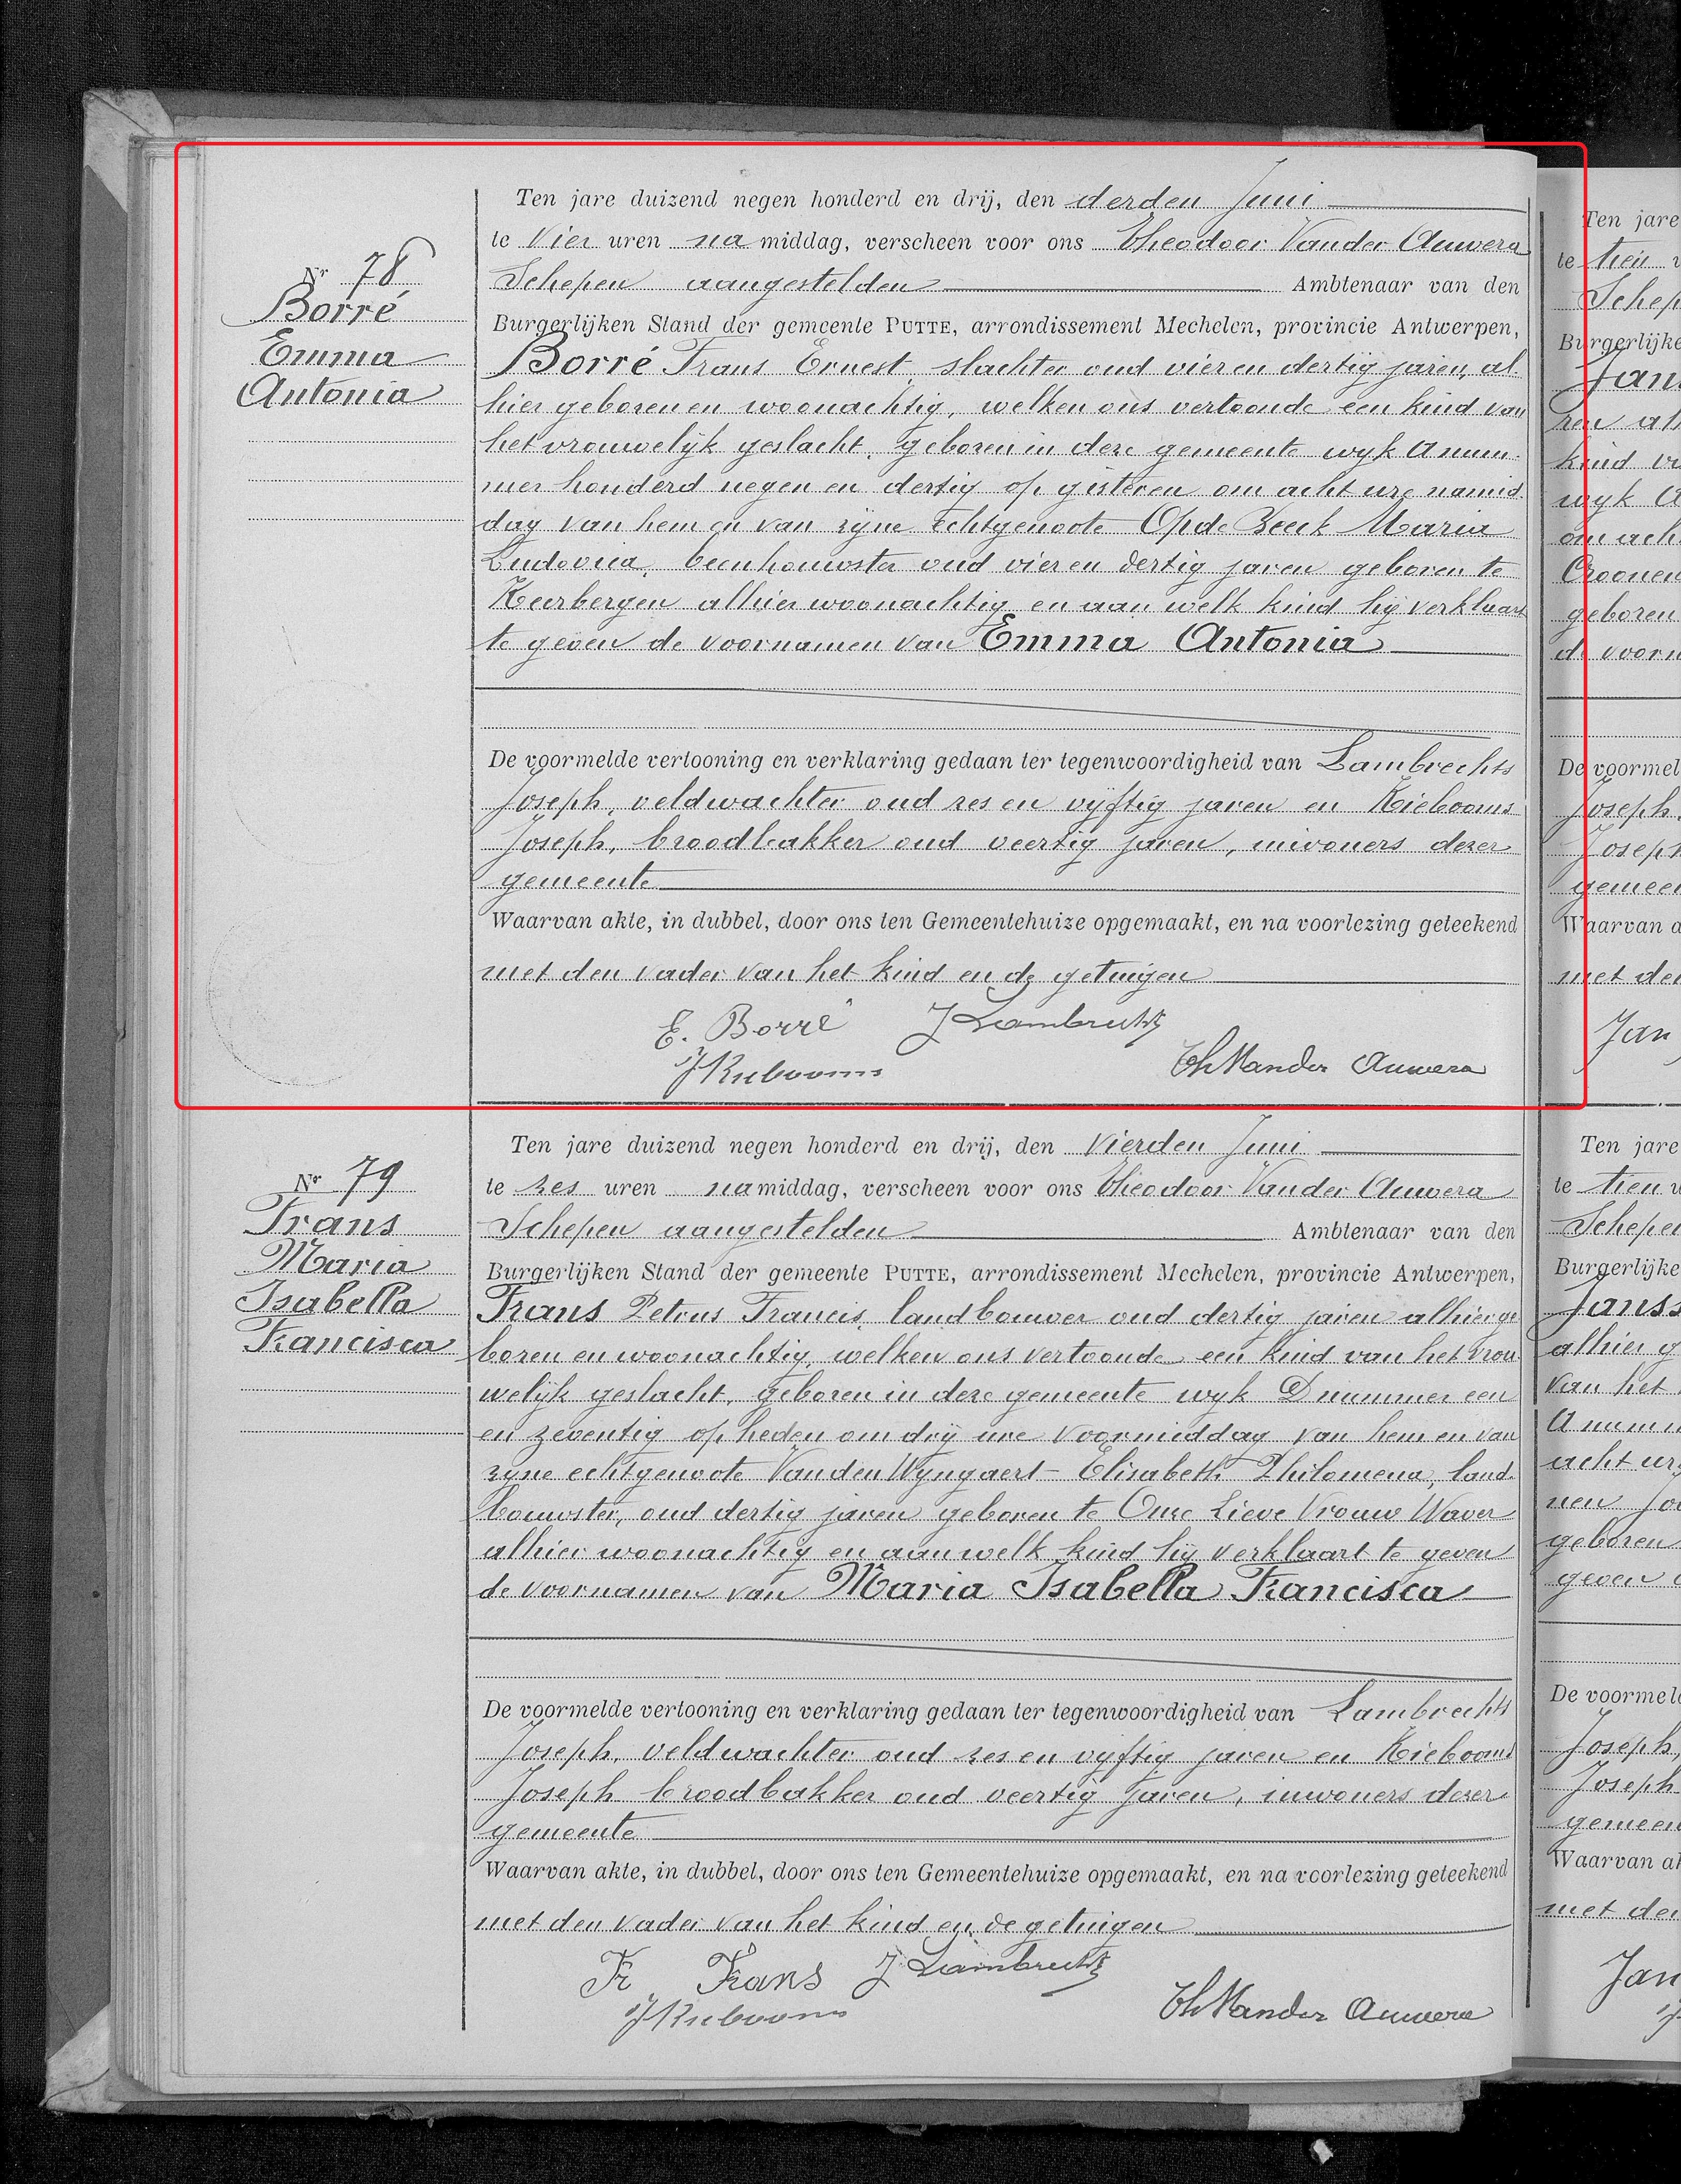 Nr 78
Borré
Emma
Antonia
Ten jare duizend negen honderd en drij, den derden Juni
te vier uren na middag, verscheen voor ons Theodoor Vander Auwera
Schepen aangestelden Ambtenaar van den
Burgerlijken Stand der gemeente PUTTE, arrondissement Mechelen, provincie Antwerpen,
Borré Frans Ernest, slachter oud vier en dertig jaren, al-
hier geboren en woonachtig, welken ons vertoonde een kind van
het vrouwelijk geslacht, geboren in deze gemeente wyk A num-
mer honderd negen en dertig op gisteren om acht ure namid-
dag van hem en van zijne echtgenoote Op de Beeck Maria
Ludovica, beenhouwster oud vier en dertig jaren geboren te
Keerbergen alhier woonachtig en aan welk kind hij verklaart
te geven de voornamen van Emma Antonia
De voormelde vertooning en verklaring gedaan ter tegenwoordigheid van Lambrechts
Joseph, veldwachter oud zes en vijftig jaren en Kiebooms
Joseph, broodbakker oud veertig jaren, inwoners dezer
gemeente
Waarvan akte, in dubbel, door ons ten Gemeentehuize opgemaakt, en na voorlezing geteekend
met den vader van het kind en de getuigen
E. Borré J Lambrechts
J Kiebooms Th Vander Auwera
Nr 79
Frans
Maria
Isabella
Francisca
Ten jare duizend negen honderd en drij, den vierden Juni
te zes uren namiddag, verscheen voor ons Theodoor Vander Auwera
Schepen aangestelden Ambtenaar van den
Burgerlijken Stand der gemeente PUTTE, arrondissement Mechelen, provincie Antwerpen,
Frans Petrus Francis, landbouwer oud dertig jaren alhier ge-
boren en woonachtig, welken ons vertoonde een kind van het vrou-
welijk geslacht, geboren in deze gemeente wyk D nummer een
en zeventig op heden om drij ure voormiddag van hem en van
zyne echtgenoote Vanden Wyngaert Elisabeth Philomena, land-
bouwster, oud dertig jaren geboren te Onze Lieve Vrouw Waver
alhier woonachtig en aan welk kind hij verklaart te geven
de voornamen van Maria Isabella Francisca
De voormelde vertooning en verklaring gedaan ter tegenwoordigheid van Lambrechts
Joseph, veldwachter oud zes en vyftig jaren en Kiebooms
Joseph broodbakker oud veertig jaren, inwoners dezer
gemeente
Waarvan akte, in dubbel, door ons ten Gemeentehuize opgemaakt, en na voorlezing geteekend
met den vader van het kind en de getuigen
Fr Frans J Lambrechts
J Kiebooms Th Vander Auwera
Ten jare
te tien
Schep
Burgerlijke
Jan
ren al
kind v
wyk A
om ach
Croonen
geboren
de voorn
De voormel
Joseph,
Joseph
gemeen
Waarvan a
met den
Jan
Ten jare
te tien u
Schepen
Burgerlijke
Janss
alhier g
van het
A numm
acht ur
nen Jo
geboren
geven
De voormel
Joseph,
Joseph
gemeen
Waarvan ak
met den
Jan